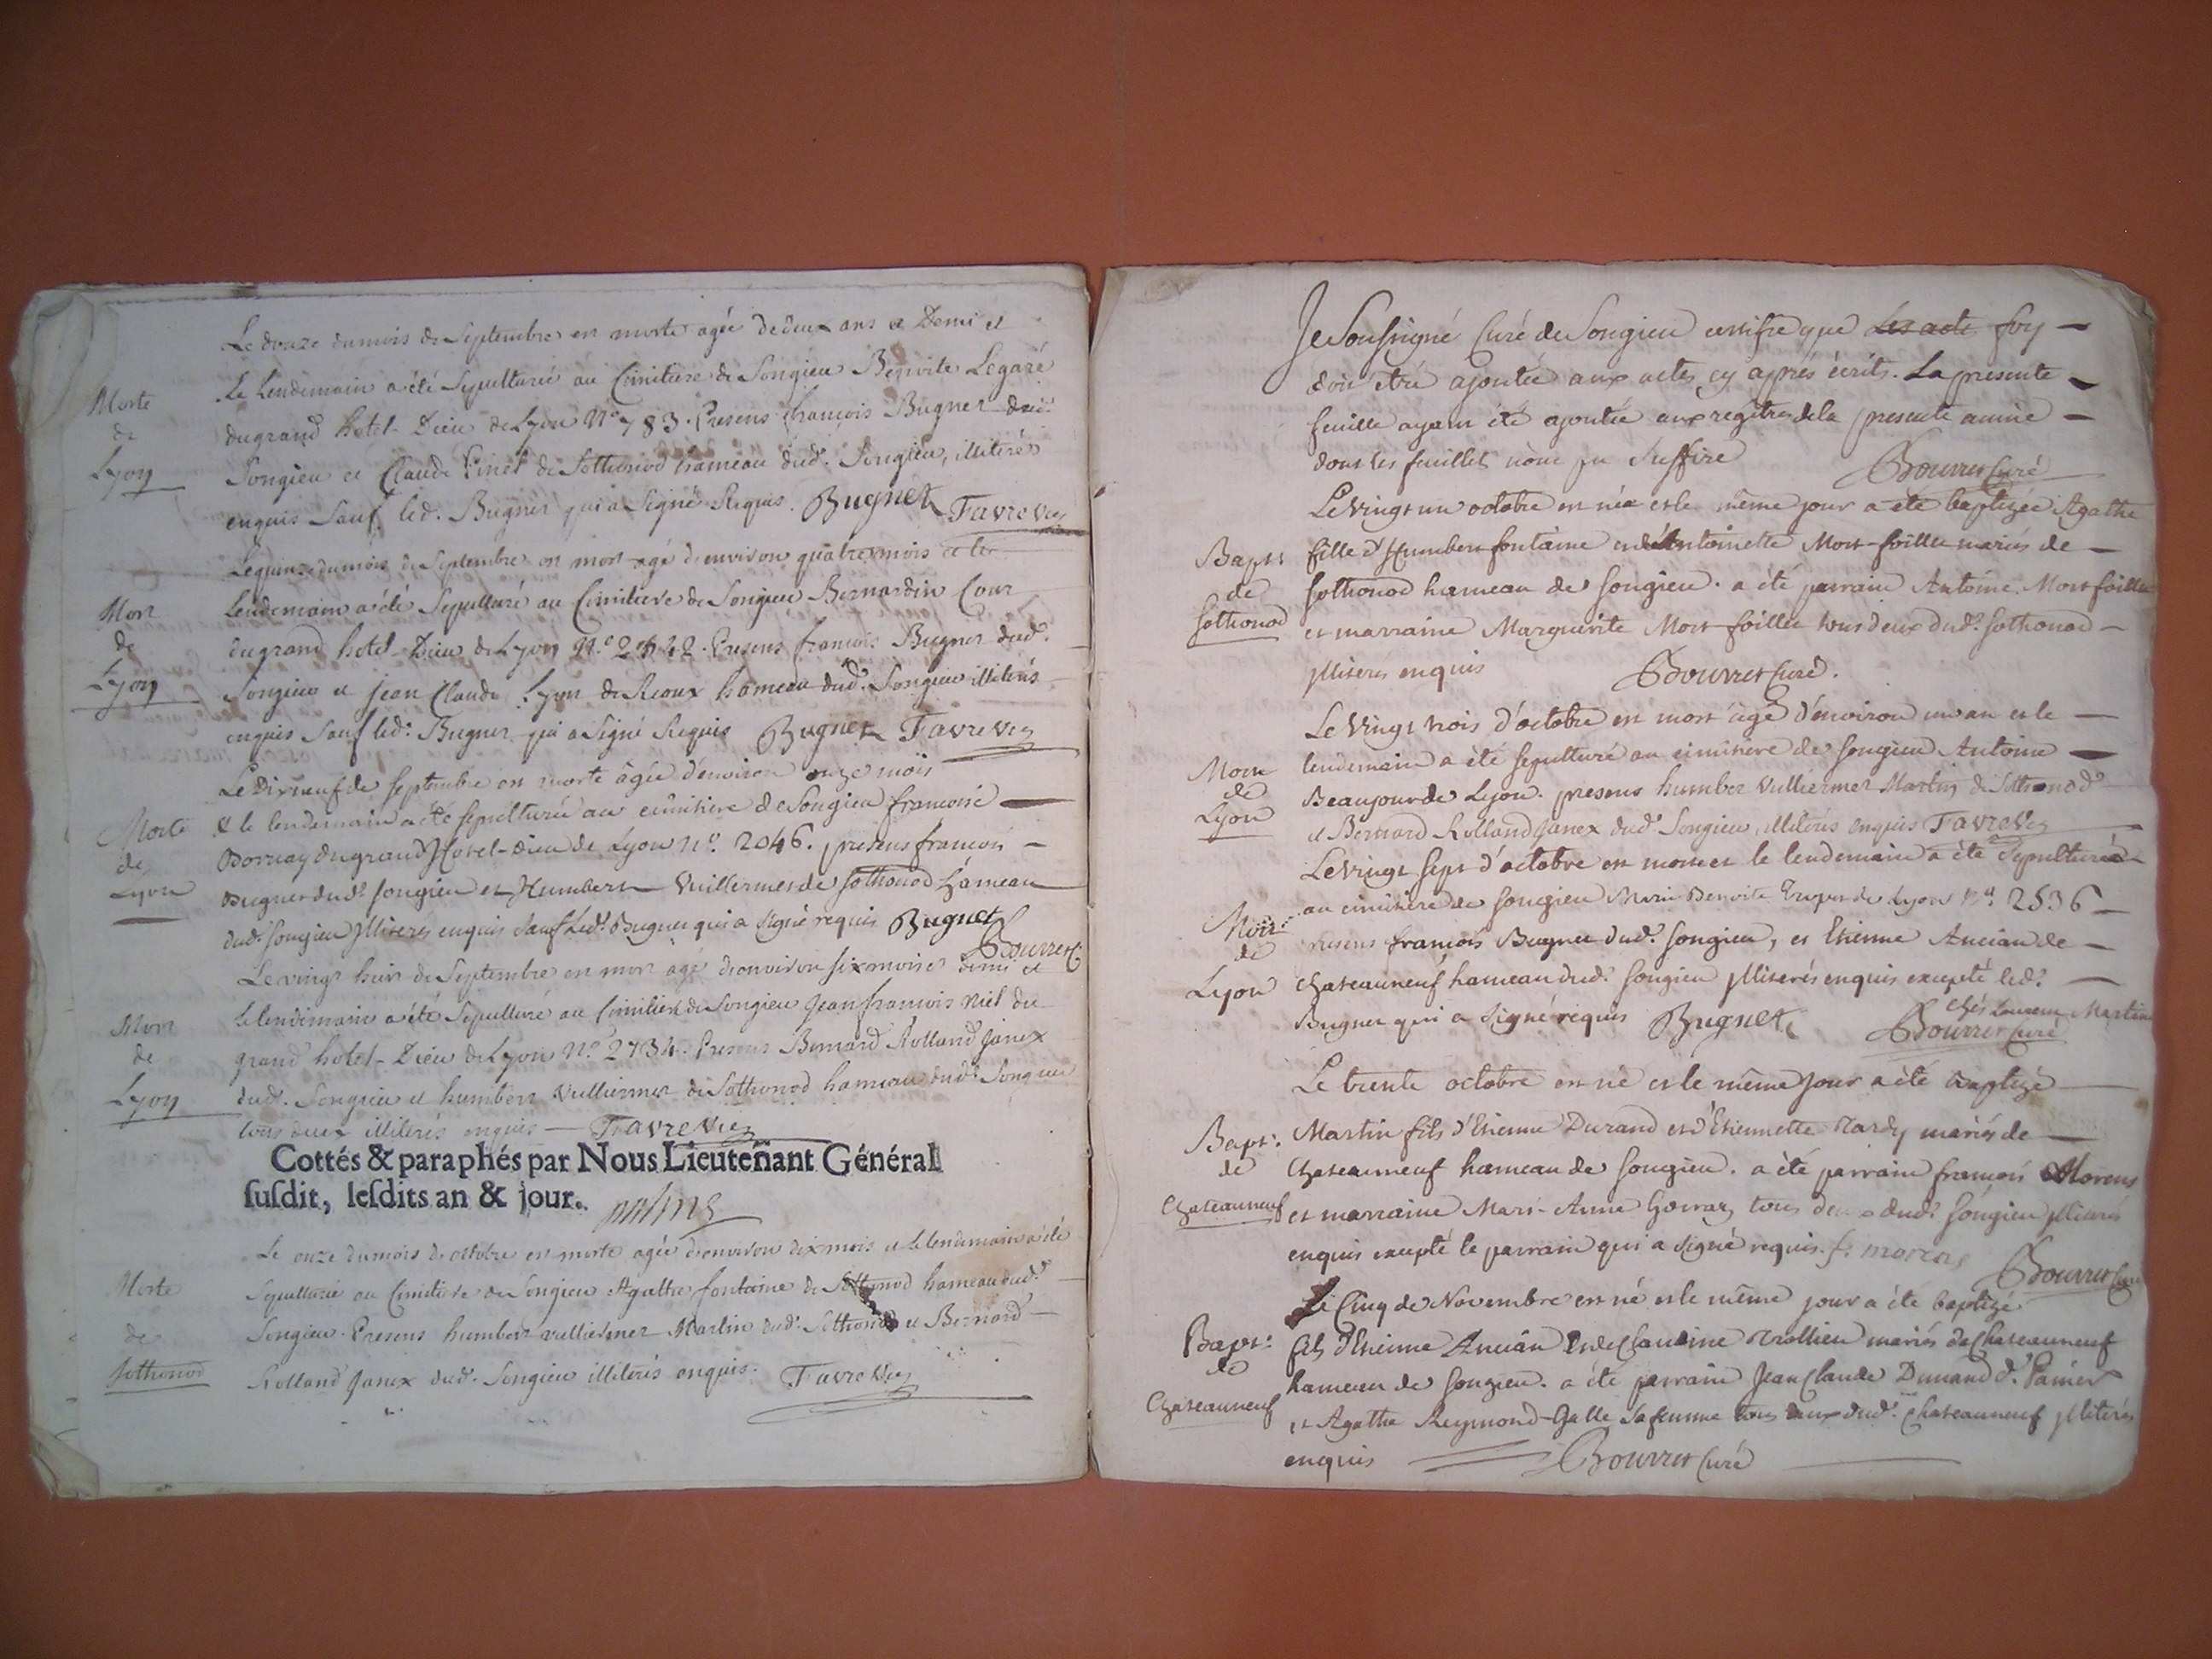 Le douze du mois de Septembre est morte agée de deux ans et Demi et
Le Lendemain a été Sepulturée au Cimitiere de Songieu Benoite Legaré
Morte de Lyon
du grand hotel-Dieu de Lyon N.° 783. Presens françois Bugnet dud.
Songieu et Claude Pinet de Sothonod hameau dud. Songieu, illiterés
enquis Sauf led. Bugnet qui a Signé Requis. Bugnet Favre Vic
Le quinze du mois de Septembre est mort agé d'environ quatre mois et le
Mort de Lyon
Lendemain a été Sepulturé au Cimitiere de Songieu Bernardin Cour
du grand hotel-Dieu de Lyon N.° 2142. Presens françois Bugnet dud.
Songieu et jean Claude Lyon de Reaux hameau dud. Songieu illiterés
enquis Sauf led. Bugnet qui a Signé Requis Bugnet Favre Vic
Le Dix neuf de septembre est morte âgée d'environ onze mois
Morte de Lyon
& le lendemain a été sepulturée au cimitiere de Songieu francoise
Bornay du grand Hotel-Dieu de Lyon N.° 2046. presens francois
Bugnet dud. songieu et Humbert Vuillermet de sothonod hameau
dud. songieu Illiterés enquis sauf led. Bugnet qui a signé requis Bugnet
Bourret C.
Le vingt huit de Septembre est mort agé d'environ six mois et demi et
Mort de Lyon
le lendemain a été Sepulturé au Cimitiere de Songieu Jean francois Niel du
grand hotel-Dieu de Lyon N.° 2734. Presens Bernard Rolland Janex
dud. Songieu et humbert Vulliermet de Sothonod hameau dud. Songieu
tous deux illiterés enquis Favre Vic
Cottés & paraphés par Nous Lieutenant Général
susdit, lesdits an & jour.
Le onze du mois de octobre est morte agée d'environ dix mois et le lendemain a été
Morte de Sothonod
Sepulturée au Cimitiere de Songieu Agathe fontaine de Sothonod hameau dud.
Songieu. Presens humbert vulliermet Martin dud. Sothonod et Bernard
Rolland Janex dud. Songieu illiterés enquis. Favre Vic
Je Soussigné Curé de Songieu certifie que Les acte foy
doit être ajoutée aux actes cy après écrits. La presente
feuille ayant été ajoutée aux regitres de la presente année
dont les feuillets n'ont pu suffire Bourret Curé
Le vingt un octobre est née et le même jour a été baptizée Agathe
Bapt: de Sothonod
fille d'Humbert fontaine et d'Antoinette Mort-foillet mariés de
sothonod hameau de songieu. a été parrain Antoine Mort foillet
et marraine Marguerite Mort-foillet tous deux dud. sothonod
Illiterés enquis Bourret Curé.
Le Vingt trois d'octobre est mort âgé d'environ un an et le
Mort de Lyon
lendemain a été sepulturé au cimitiere de songieu Antoine
Beaujour de Lyon. presens humber Vulliermet Martin de Sothonod
et Bernard Rolland Janex dud. Songieu, illiterés enquis Favre Vic
Le vingt sept d'octobre est morte et le lendemain a été Sepulturée
Mort de Lyon
au cimitiere de songieu Marie Benoite de Lyon N.° 2536
presens francois Bugnet dud. songieu, et Etienne Ancian de
Chateauneuf hameau dud. songieu Illiterés enquis excepté led.
Bugnet qui a signé requis Bugnet
chés Laurent Martin
Bourret Curé
Le trente octobre est né et le même jour a été baptizé
Bapt: de Chateauneuf
Martin fils d'Etienne Durand et d'Etiennette Tardy mariés de
Chateauneuf hameau de songieu. a été parrain françois Morens
et marraine Marie-Anne tous deux dud. songieu Illiterés
enquis excepté le parrain qui a signé requis. f. morens
Bourret Curé
Le Cinq de Novembre est né et le même jour a été baptizé
Bapt: de Chateauneuf
fils d'Etienne Ancian et de Claudine Trollieu mariés de Chateauneuf
hameau de songieu. a été parrain Jean Claude Dumand d.
et Agathe Reymond-Galle sa femme tous deux dud. Chateauneuf Illiterés
enquis Bourret Curé